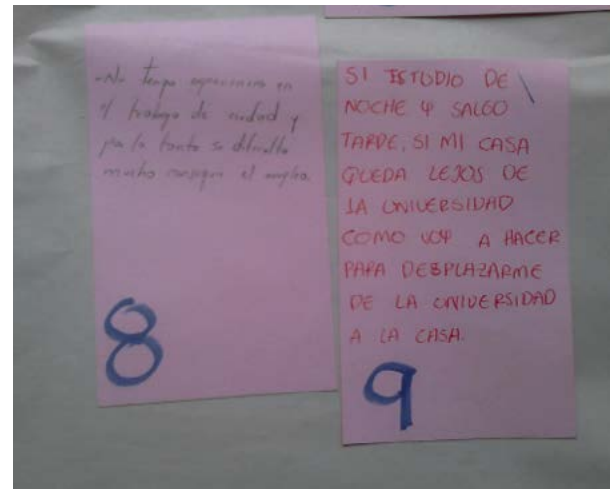 -No tengo experiencia en
el trabajo de ciudad y
por lo tanto se dificulta
mucho conseguir el empleo.
8
SI ESTUDIO DE
NOCHE Y SALGO
TARDE, SI MI CASA
QUEDA LEJOS DE
LA UNIVERSIDAD
COMO VOY A HACER
PARA DESPLAZARME
DE LA UNIVERSIDAD
A LA CASA.
9